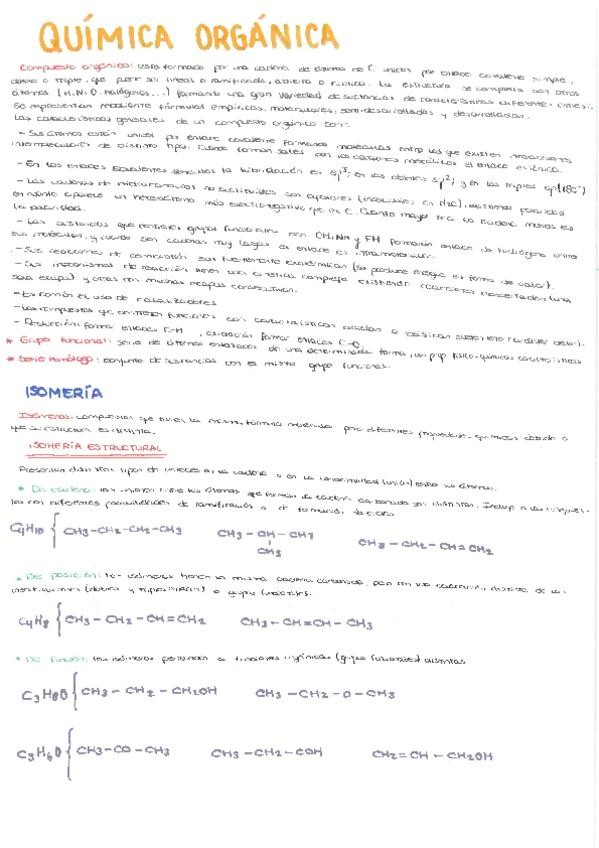 QUÍMICA ORGÁNICA
Compuesto orgánico: está formado por una cadena de átomos de C unidos por enlace covalente simple,
doble o triple, que puede ser lineal o ramificada, abierta o cíclica. La estructura se completa con otros
átomos (H, N, O, halógenos...) formando una gran variedad de sustancias de características diferentes
Se representan mediante fórmulas empíricas, moleculares, semidesarrolladas y desarrolladas.
Las características generales de un compuesto orgánico son:
- Sus átomos están unidos por enlace covalente formando moléculas entre las que existen
intermoleculares de distinto tipo. Cuando forman sales con los cationes metálicos el enlace es iónico.
- En los enlaces covalentes sencillos la hibridación es sp³, en los dobles sp², y en los triples sp (180°)
- Las cadenas de hidrocarburos no sustituidos son apolares (insolubles en H2O),
cuando aparece un heteroátomo más electronegativo que el C. Cuanto mayor sea la cadena menor es
la polaridad.
- Las sustancias que tienen grupos funcionales con OH, NH y FH formarán enlace de hidrógeno entre
sus moléculas, y cuando son cadenas muy largas el enlace es intramolecular.
- Sus reacciones de combustión son fuertemente exotérmicas (se produce energía en forma de calor).
- Los mecanismos de reacción tienen una cinética compleja existiendo reacciones concertadas (una
sola etapa) y otras con muchas etapas consecutivas.
- Es común el uso de catalizadores
- Los compuestos que contienen funciones con características ácidas o básicas
- Reducción: forma enlaces C-H, oxidación formar enlaces C-O
* Grupo funcional: serie de átomos enlazados de una determinada forma, con prop físico-químicas características
* Serie homóloga: conjunto de sustancias con el mismo grupo funcional.
ISOMERÍA
Isómeros: compuestos que tienen la misma fórmula molecular pero diferentes propiedades químicas debido a
que su estructura es distinta.
ISOMERÍA ESTRUCTURAL
Presentan distintos tipos de enlaces en la cadena o en la conectividad (unión) entre los átomos.
* De cadena: los átomos que forman la cadena carbonada son distintos. Incluye
las diferentes posibilidades de ramificación o de formación de ciclos
C4H10 { CH3-CH2-CH2-CH3 CH3-CH-CH3
CH3
CH3-CH2-CH=CH2
* De posición: los isómeros tienen la misma cadena carbonada, pero en una colocación distinta de las
insaturaciones (dobles y triples enlaces) o grupo funcional.
C4H8 { CH3-CH2-CH=CH2 CH3-CH=CH-CH3
* De función: los isómeros pertenecen a funciones orgánicas (grupos funcionales) distintas
C3H8O { CH3-CH2-CH2OH CH3-CH2-O-CH3
C3H6O { CH3-CO-CH3 CH3-CH2-COH CH2=CH-CH2OH